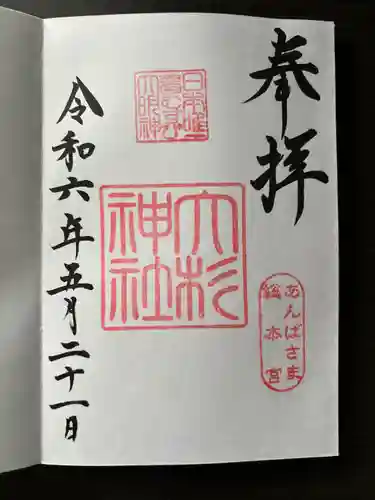 奉拝
あんばさま
総本宮
日本唯一
大杉
神社
令和六年五月二十一日